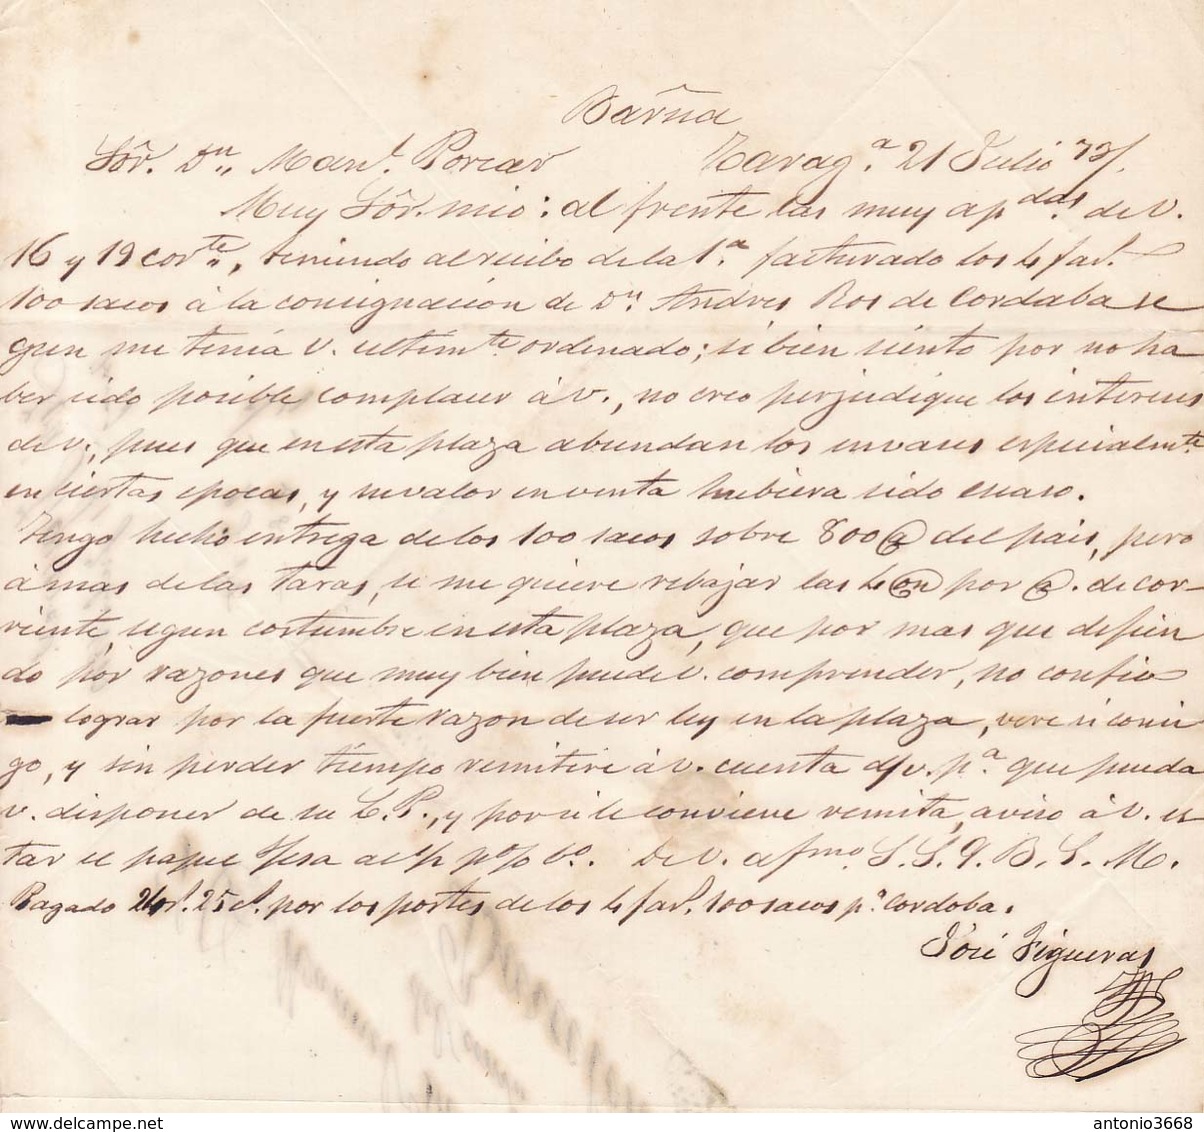 Barña
Sôr. Dn. Manl. Porcar Taraga. 21 Julio 73/.
Muy Sôr. mio: al frente las muy apdas. de V.
16 y 19 corte., teniendo al recibo de la 1a. facturado los 4 far.
100 sacos á la consignacion de Dn. Andres Ros de Cordaba se
gun me tenia V. ultimte. ordenado; si bien siento por no ha
ber sido posible complacer á V., no creo perjudique los intereses
de V., pues que en esta plaza abundan los envases especialmte.
en ciertas epocas, y su valor en venta hubiera sido escaso.
Tengo hecho entrega de los 100 sacos sobre 800 @ del pais, pero
á mas de las taras, se me quiere rebajar las 4 on por @. de cor-
riente, segun costumbre en esta plaza, que por mas que defien
do por razones que muy bien puede V. comprender, no confio
lograr por la fuerte razon de ser ley en la plaza, vere si consi
go, y sin perder tiempo remitire á V. cuenta d/v. pa. que pueda
V. disponer de su L. P., y por si le conviene remita, aviso á V. es
tar el papel s/esa al p%. De V. afmo. S. S. Q. B. S. M.
Pagado 24 r. 25 c. por los portes de los 4 far. 100 sacos pa. Cordoba.
José Figueras
antonio3668